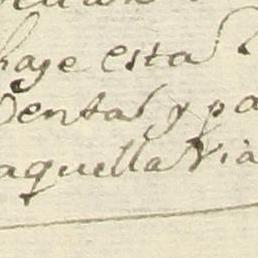 haze esta
Dental y pa
aquella Via